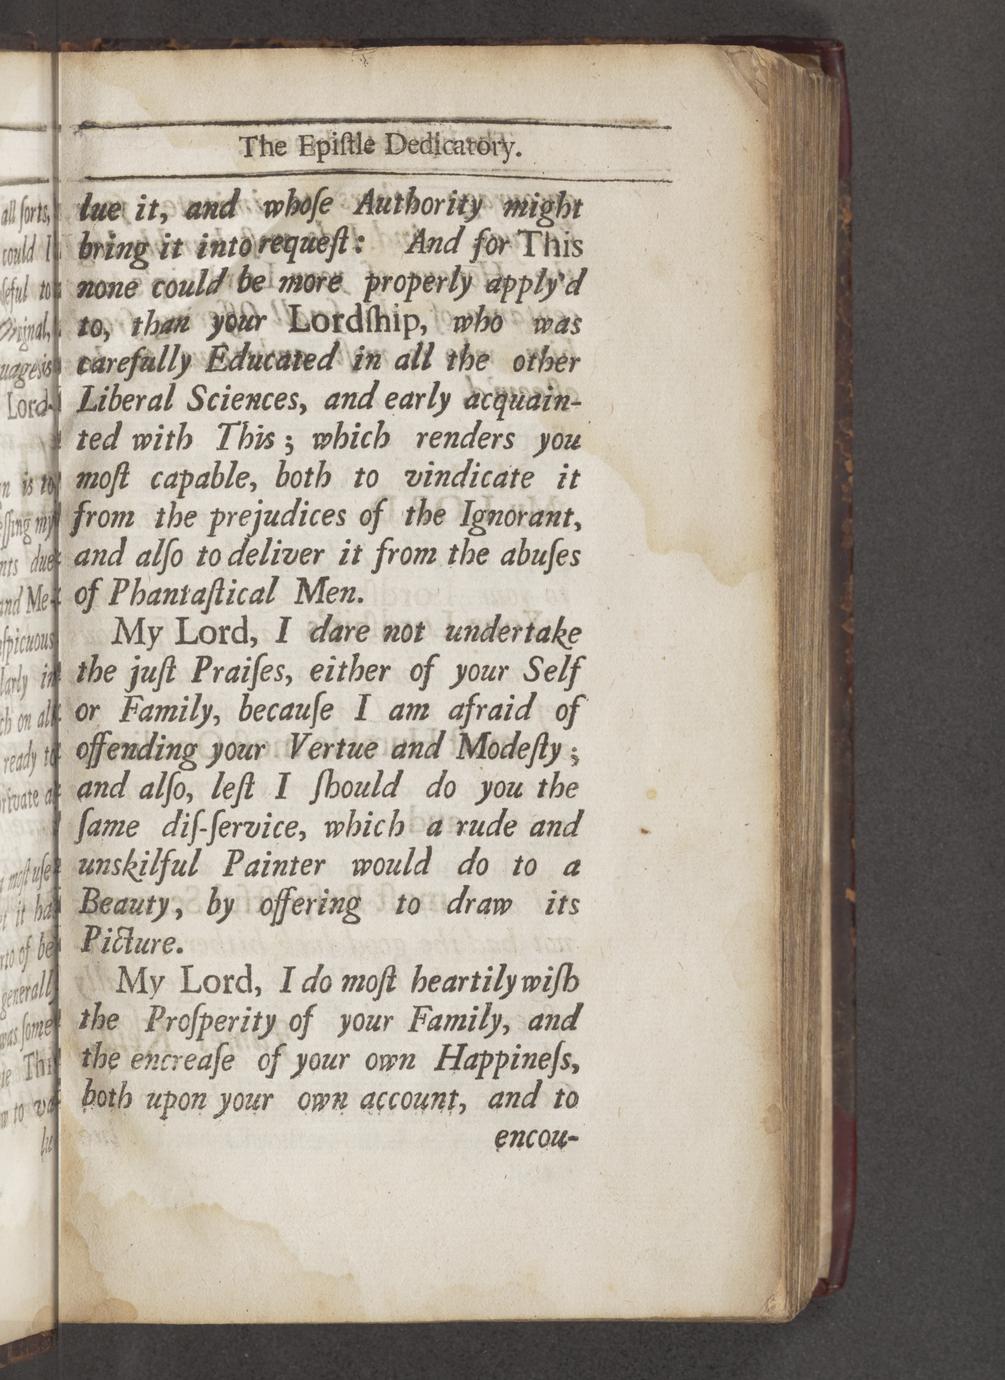 The Epiſtle Dedicatory.
lue it, and whoſe Authority might
bring it into requeſt: And for This
none could be more properly apply'd
to, than your Lordſhip, who was
carefully Educated in all the other
Liberal Sciences, and early acquain-
ted with This; which renders you
moſt capable, both to vindicate it
from the prejudices of the Ignorant,
and alſo to deliver it from the abuſes
of Phantaſtical Men.
My Lord, I dare not undertake
the juſt Praiſes, either of your Self
or Family, becauſe I am afraid of
offending your Vertue and Modeſty;
and alſo, leſt I ſhould do you the
ſame diſ-ſervice, which a rude and
unskilful Painter would do to a
Beauty, by offering to draw its
Picture.
My Lord, I do moſt heartily wiſh
the Proſperity of your Family, and
the encreaſe of your own Happineſs,
both upon your own account, and to
encou-